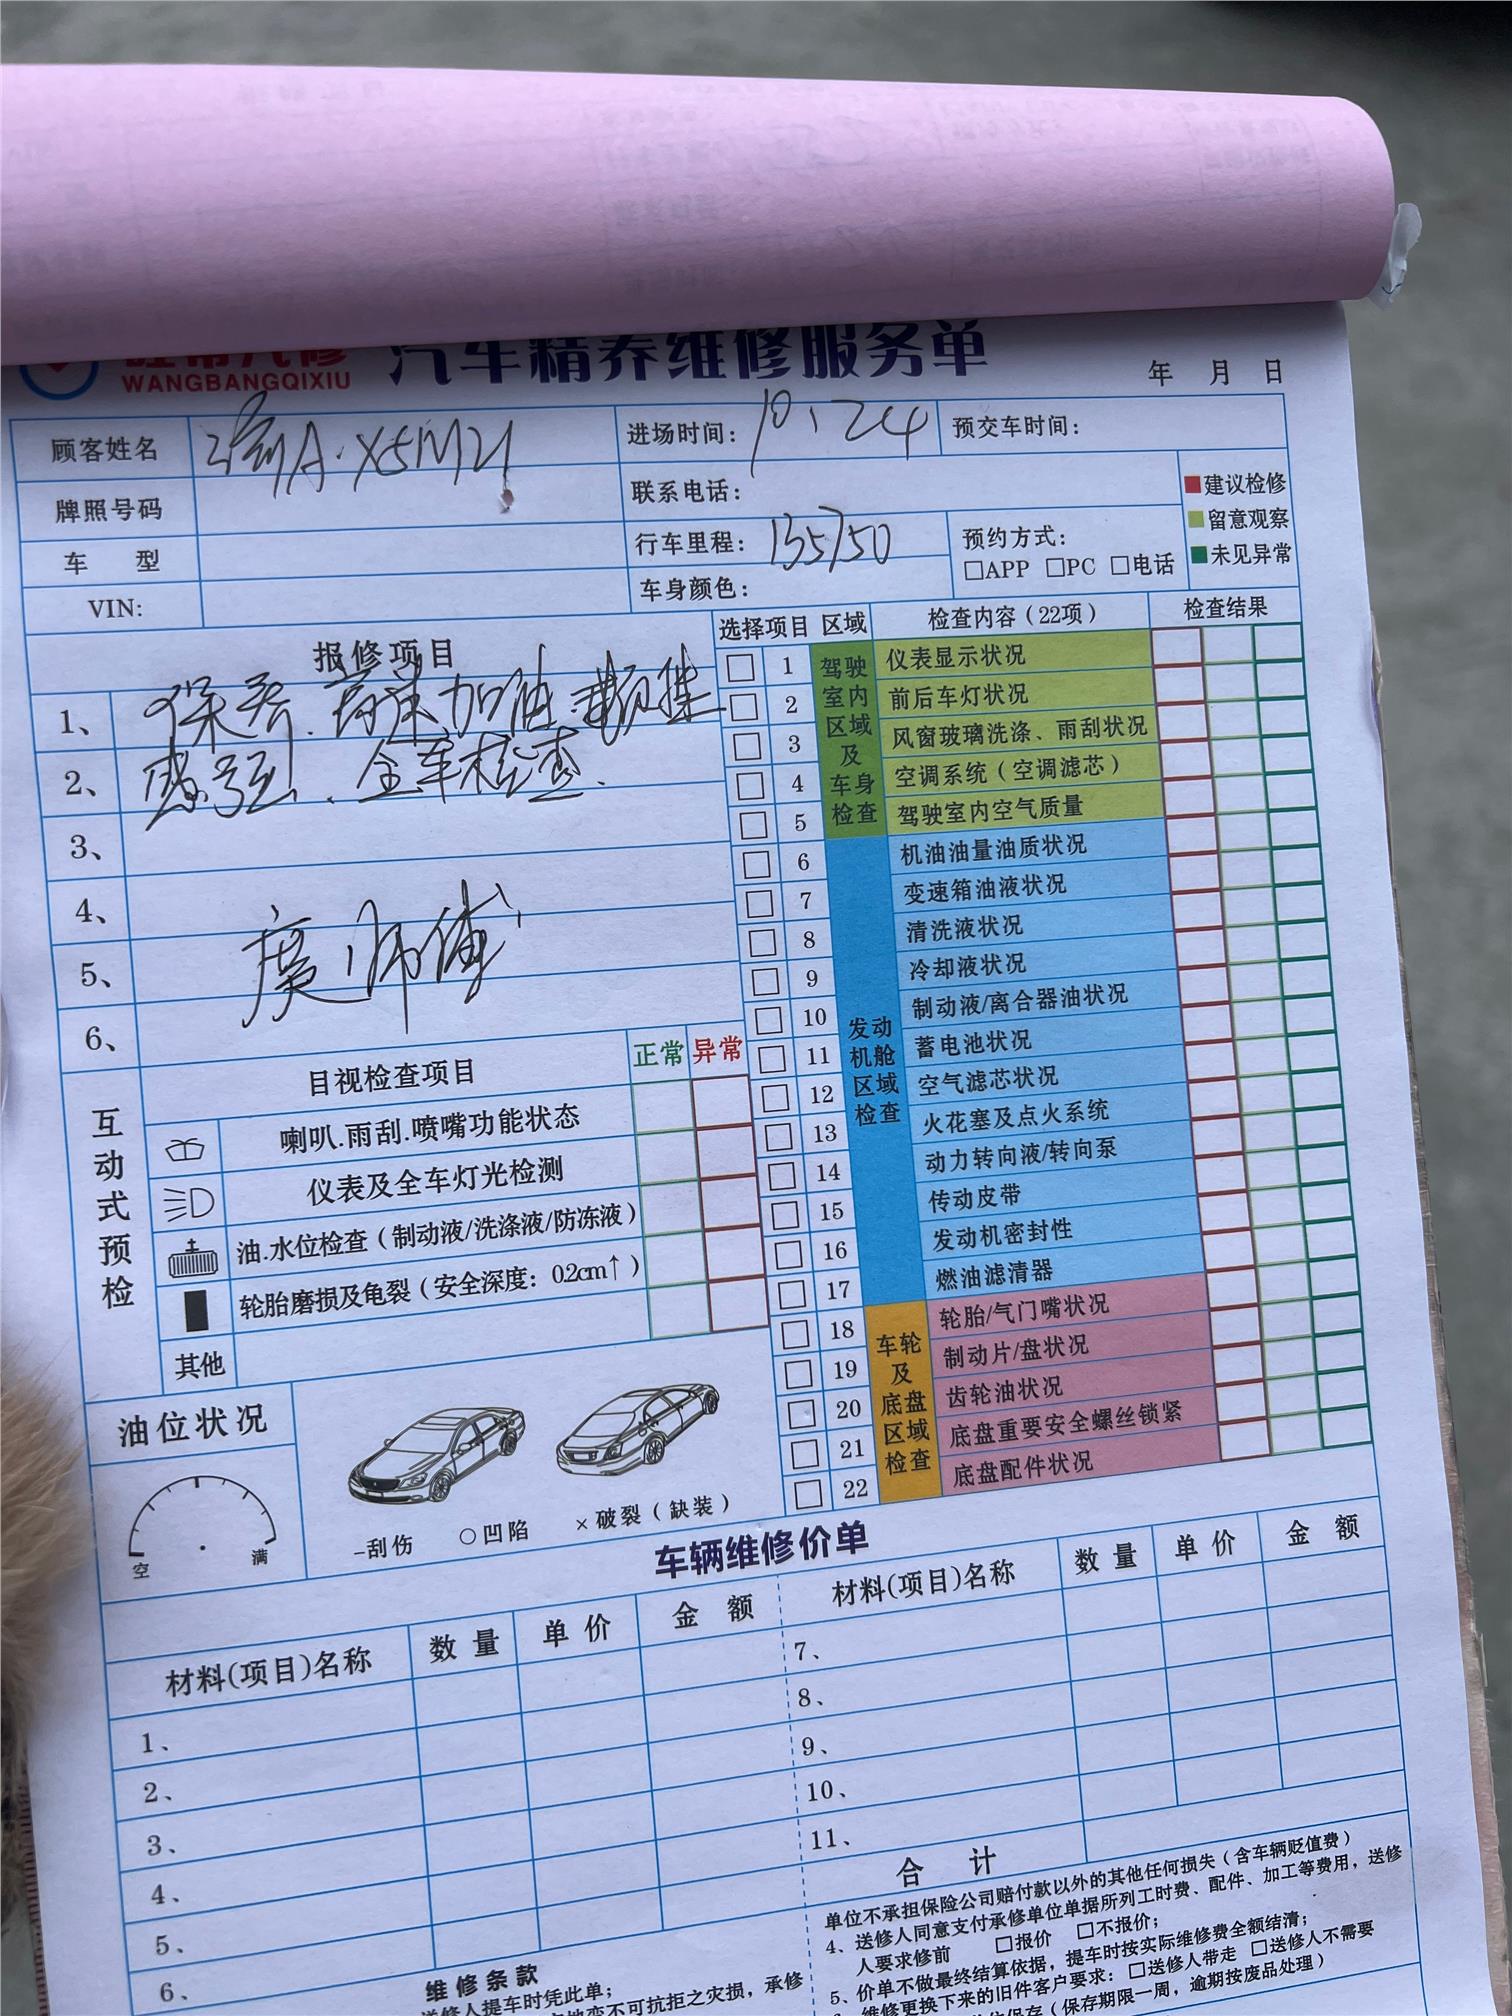 WANGBANGQIXIU 汽车精养维修服务单
年 月 日
顾客姓名 A·X5M21 进场时间: 10、24 预交车时间:
牌照号码 联系电话:
车 型 行车里程: 135750 预约方式:
□APP □PC □电话
VIN: 车身颜色:
建议检修
留意观察
未见异常
报修项目
1、 保养. 高速加油
2、 感强. 全车检查.
3、
4、
5、 师傅
6、
选择项目 区域 检查内容（22项） 检查结果
驾驶室内区域及车身检查
1 仪表显示状况
2 前后车灯状况
3 风窗玻璃洗涤、雨刮状况
4 空调系统（空调滤芯）
5 驾驶室内空气质量
发动机舱区域检查
6 机油油量油质状况
7 变速箱油液状况
8 清洗液状况
9 冷却液状况
10 制动液/离合器油状况
11 蓄电池状况
12 空气滤芯状况
13 火花塞及点火系统
14 动力转向液/转向泵
15 传动皮带
16 发动机密封性
17 燃油滤清器
车轮及底盘区域检查
18 轮胎/气门嘴状况
19 制动片/盘状况
20 齿轮油状况
21 底盘重要安全螺丝锁紧
22 底盘配件状况
互动式预检
目视检查项目 正常 异常
喇叭.雨刮.喷嘴功能状态
仪表及全车灯光检测
油.水位检查（制动液/洗涤液/防冻液）
轮胎磨损及龟裂（安全深度：0.2cm↑）
其他
油位状况
空 满
–刮伤 ○凹陷 ×破裂（缺装）
车辆维修价单
材料(项目)名称 数 量 单 价 金 额
1、
2、
3、
4、
5、
6、
材料(项目)名称 数 量 单 价 金 额
7、
8、
9、
10、
11、
合 计
维修条款
送修人提车时凭此单;
不可抗拒之灾损，承修
单位不承担保险公司赔付款以外的其他任何损失（含车辆贬值费）
4、送修人同意支付承修单位单据所列工时费、配件、加工等费用，送修
人要求修前 □报价 □不报价;
5、价单不做最终结算依据，提车时按实际维修费全额结清;
维修更换下来的旧件客户要求: □送修人带走 □送修人不需要
保存（保存期限一周，逾期按废品处理）